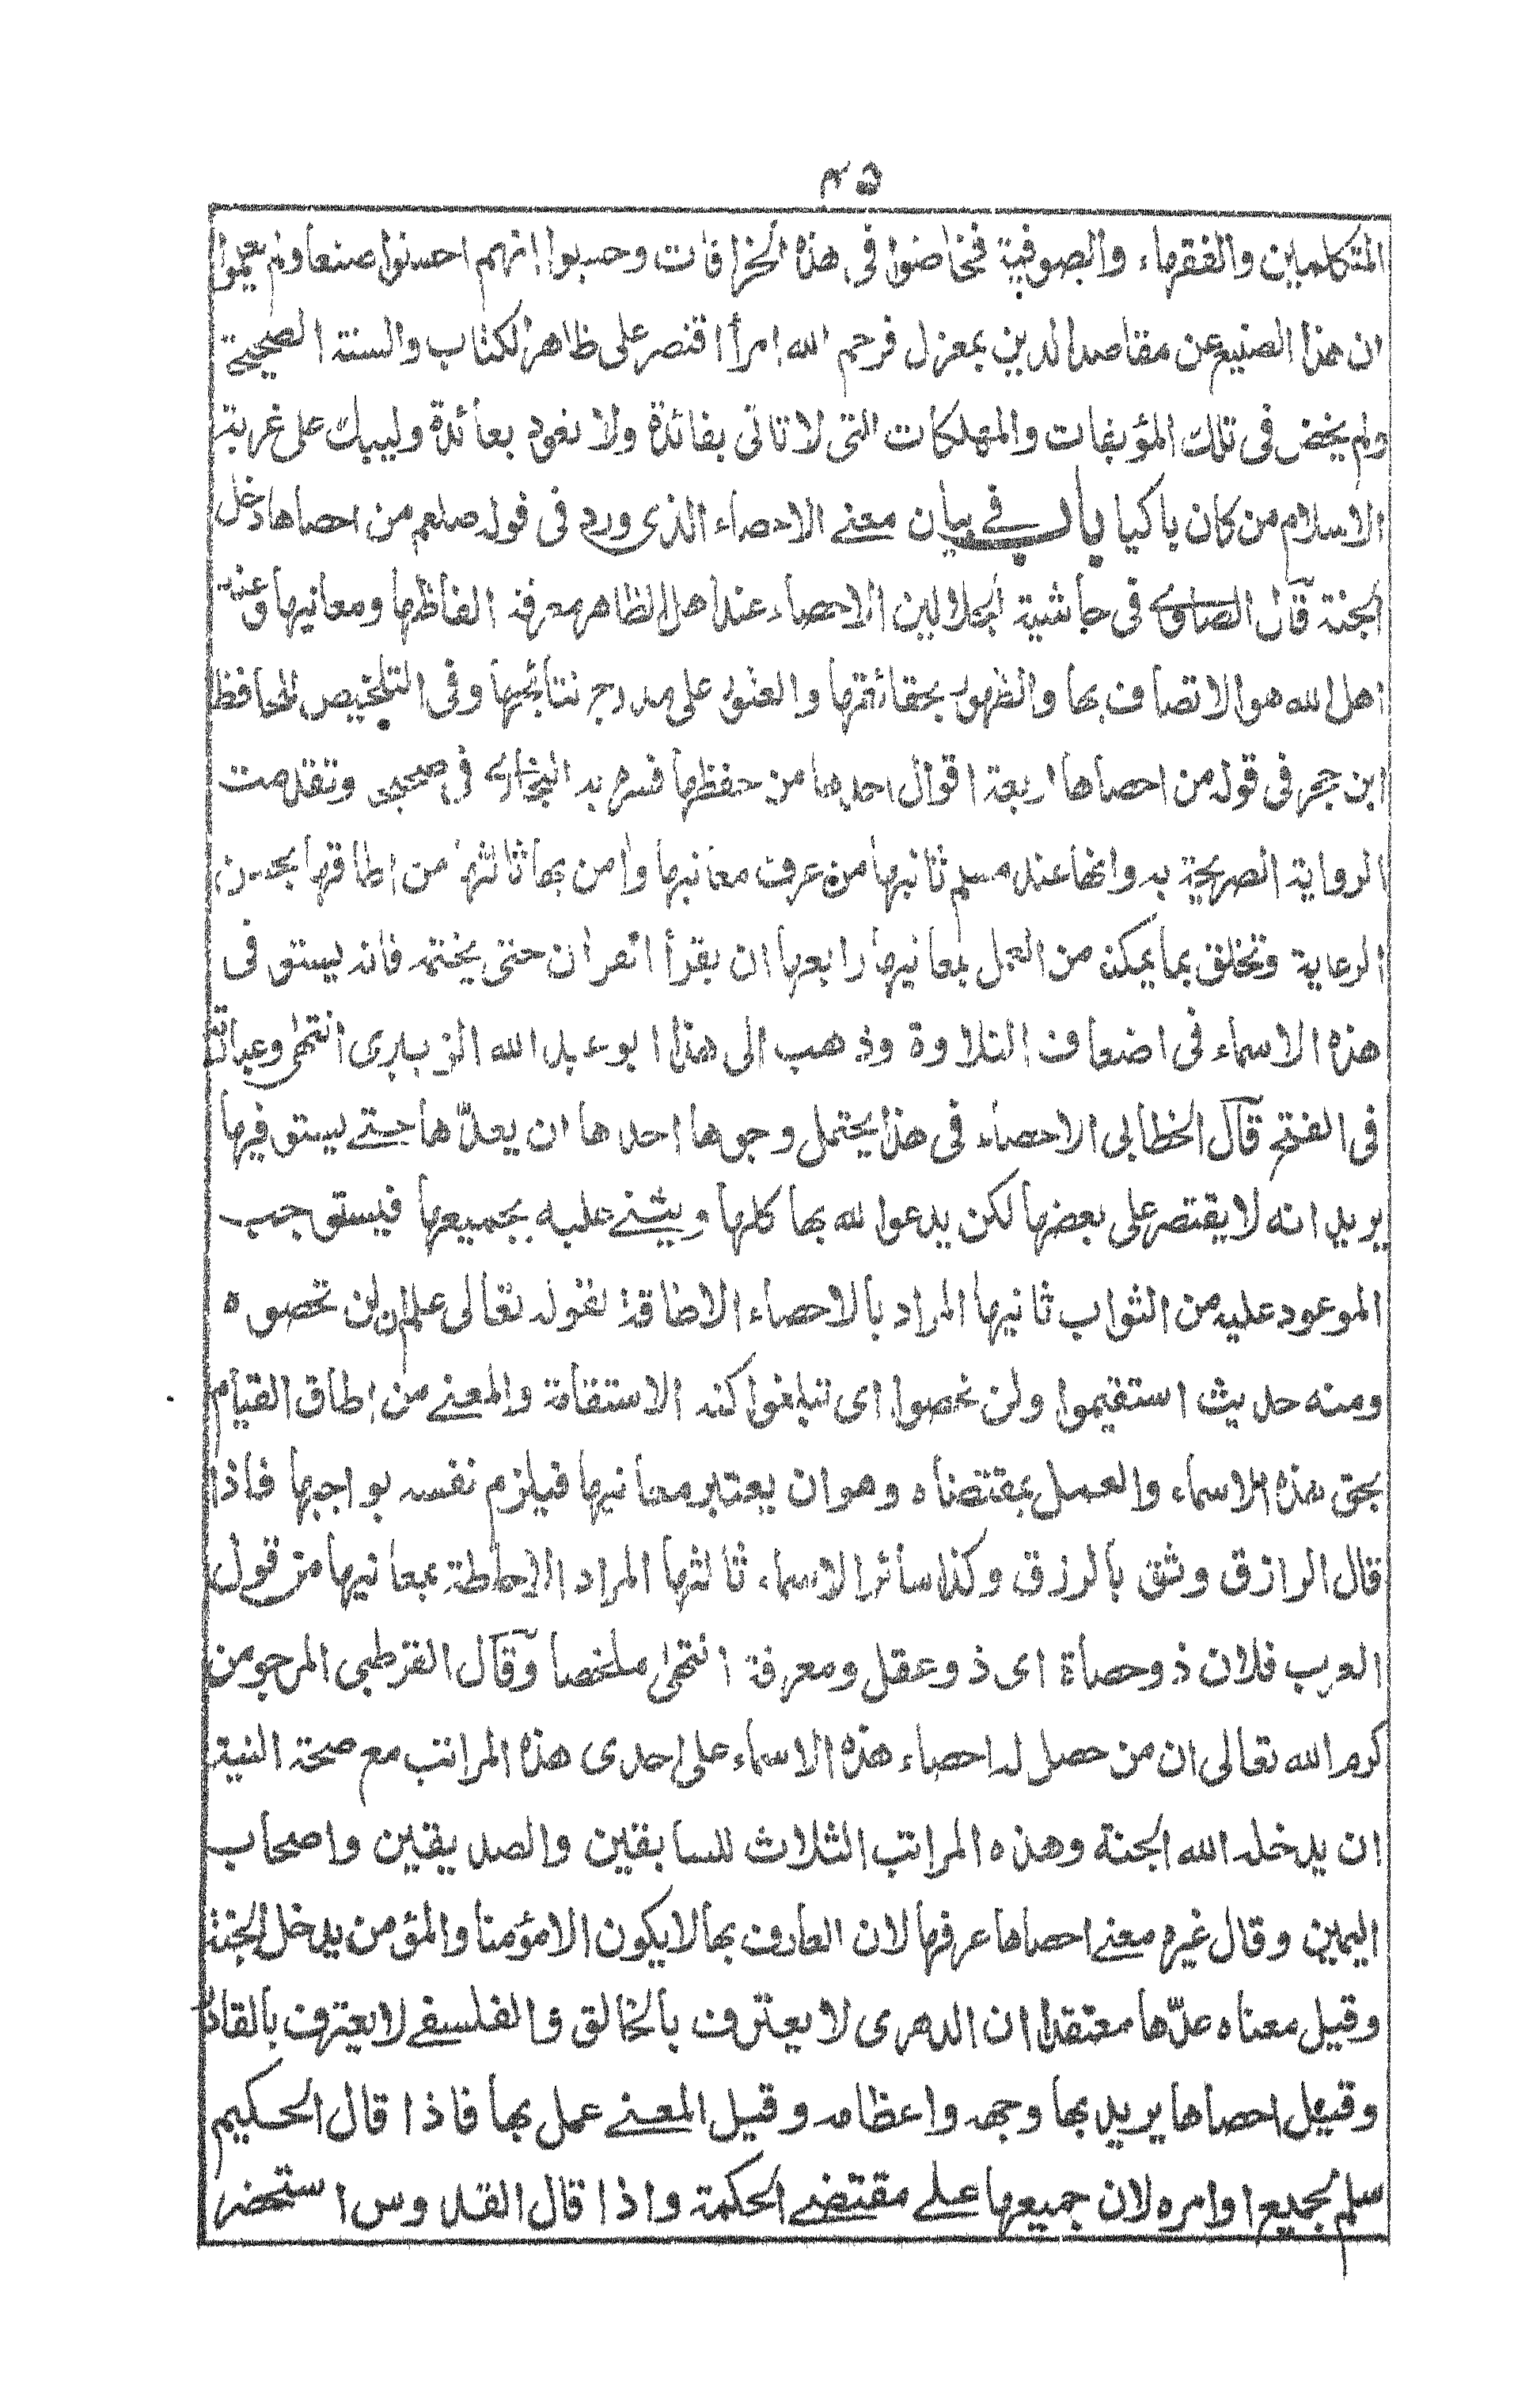 ٤٥
المتكلمين والفقهاء والصوفية فخاضوا في هذه الخرافات وحسبوا انهم احسنوا صنعا ولم يعلموا
ان هذا الصنيع عن مقاصد الدين بمعزل فرحم الله امرأ اقتصر على ظاهر الكتاب والسنة الصحيحة
ولم يخض في تلك المؤبقات والمهلكات التي لا تاتي بفائدة ولا تعود بعائدة وليبك على غربة
الاسلام من كان باكيا باب في بيان معنے الاحصاء الذي ورد في قوله صلعم من احصاها دخل
الجنة قال الصاوي في حاشية الجلالين الاحصاء عند اهل الظاهر معرفة الفاظها ومعانيها وعند
اهل الله هو الاتصاف بها والظهور بحقائقها والعثور على مدرج نتائجها وفي التلخيص للحافظ
ابن حجر في قوله من احصاها اربعة اقوال احدها من حفظها فسره به البخاري في صحيحه وتقدمت
الرواية الصريحة به وانها عند مسلم ثانيها من عرف معانيها وامن بها ثالثها من اطاقها بحسن
الرعاية وتخلق بما يمكنه من العمل بمعانيها رابعها ان يقرأ القران حتى يختمه فانه يستوفي
هذه الاسماء في اضعاف التلاوة وذهب الى هذا ابو عبد الله الزبيري انتهى وعبارته
في الفتح قال الخطابي الاحصاء في هذا يحتمل وجوها احدها ان يعدّها حتے يستوفيها
يريد انه لا يقتصر على بعضها لكن يدعو الله بها كلها ويثنے عليه بجميعها فيستوجب
الموعود عليه من الثواب ثانيها المراد بالاحصاء الاطاقة لقوله تعالى علم ان لن تحصوه
ومنه حديث استقيموا ولن تحصوا اي تبلغوا كنه الاستقامة والمعنے من اطاق القيام
بحق هذه الاسماء والعمل بمقتضاه وهو ان يعتبر معانيها فيلزم نفسه بواجبها فاذا
قال الرازق وثق بالرزق وكذا سائر الاسماء ثالثها المراد الاحاطة بمعانيها من قول
العرب فلان ذو حصاة اي ذو عقل ومعرفة انتهى ملخصا وقال القرطبي المرجو من
كرم الله تعالى ان من حصل له احصاء هذه الاسماء على احدى هذه المراتب مع صحة النية
ان يدخله الله الجنة وهذه المراتب الثلاث للسابقين والصديقين واصحاب
اليمين وقال غيره معنے احصاها عرفها لان العارف بها لا يكون الا مؤمنا والمؤمن يدخل الجنة
وقيل معناه عدّها معتقدا ان الدهرى لا يعترف بالخالق والفلسفے لا يعترف بالقادر
وقيل احصاها يريد بها وجهه واعظامه وقيل المعنے عمل بها فاذا قال الحكيم
سلم لجميع اوامره لان جميعها علے مقتضے الحكمة واذا قال القدوس استحضر